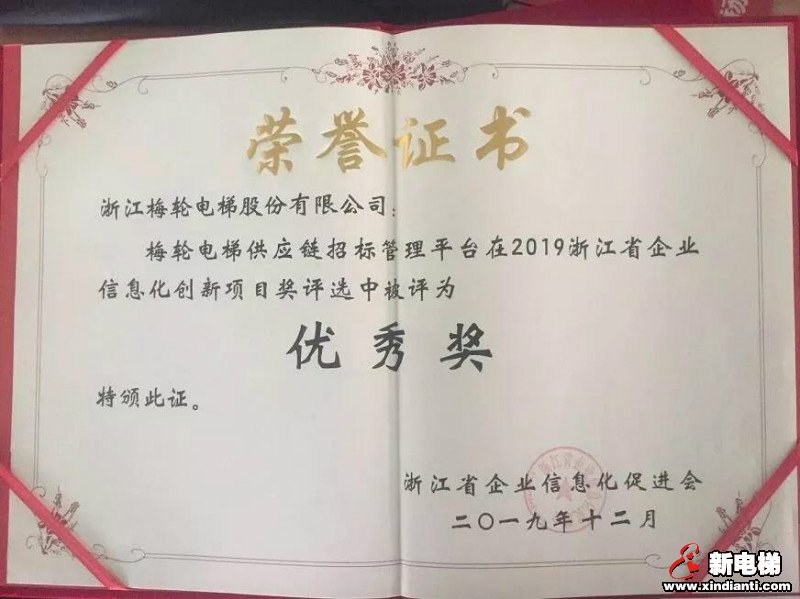 荣誉证书
浙江梅轮电梯股份有限公司：
梅轮电梯供应链招标管理平台在2019浙江省企业
信息化创新项目奖评选中被评为
优秀奖
特颁此证。
浙江省企业信息化促进会
二〇一九年十二月
新电梯
www.xindianti.com